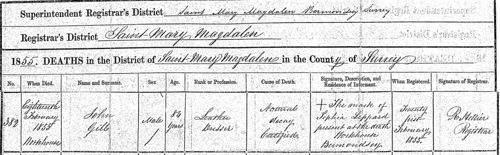 Superintendent Registrar's District Saint Mary Magdalen Bermondsey Surrey
Registrar's District Saint Mary, Magdalen
1855. DEATHS in the District of Saint Mary Magdalen in the County of Surrey
No. When Died. Name and Surname. Sex. Age. Rank or Profession. Cause of Death. Signature, Description, and Residence of Informant. When Registered. Signature of Registrar.
382 Eighteenth February 1855 Workhouse
John Gill
Male
84 years
Leather Dresser
Natural decay Certified
+ The mark of Sophia Leppard present at the death Workhouse Bermondsey
Twenty first February, 1855.
Registrar